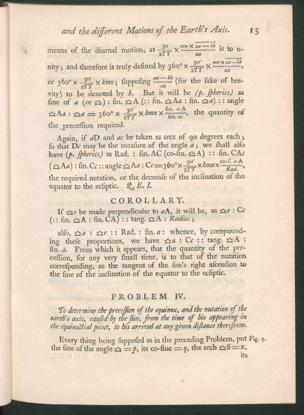 and the different Motions of the Earth's Axis. 15
means of the diurnal motion, as
is to u-
nity; and therefore is truly defined by 360° ×
or 360° × × kmv; supposing (for the sake of bre-
vity) to be denoted by k. But it will be (p. spherics) as
fine of a (or ♎) : fin. ♎A (:: fin. ♎Aa : fin. ♎a) :: angle
♎Aa : ♎a = 360° × × kmv × , the quantity of
the precession required.
Again, if aD and ac be taken as arcs of 90 degrees each;
so that Dc may be the measure of the angle a; we shall also
have (p. spherics) as Rad. : fin. AC (co-fin. ♎A) :: fin. CAc
(♎Aa) : fin. Cc :: angle ♎Aa : Cc = 360° × × kmv ×
the required notation, or the decrease of the inclination of the
equator to the ecliptic. Q. E. I.
COROLLARY.
If ♎e be made perpendicular to aA, it will be, as ♎e : Cc
(:: fin. ♎A : fin. CA) :: tang. ♎A : Radius;
also, ♎a : ♎e :: Rad. : fin. a : whence, by compound-
ing these proportions, we have ♎a : Cc :: tang. ♎A :
fin. a. From which it appears, that the quantity of the pre-
cession, for any very small time, is to that of the nutation
corresponding, as the tangent of the sun's right ascension to
the sine of the inclination of the equator to the ecliptic.
PROBLEM IV.
To determine the precession of the equinox, and the nutation of the
earth's axis, caused by the sun, from the time of his appearing in
the equinoctial point, to his arrival at any given distance therefrom.
Every thing being supposed as in the preceding Problem, put Fig. 9.
the sine of the angle ♎ = p, its co-sine = q, the arch ♎S = z,
its